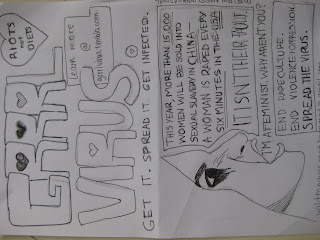 RIOTS
not
DIETS
GRRRL
VIRUS
learn more
@
GET IT. SPREAD IT. GET INFECTED.
THIS YEAR MORE THAN 15,000
WOMEN WILL BE SOLD INTO
SEXUAL SLAVERY IN CHINA—
A WOMAN IS RAPED EVERY
SIX MINUTES IN THE USA
IT ISN'T THEIR FAULT.
I'M A FEMINIST WHY AREN'T YOU?
END RAPE CULTURE.
END VIOLENCE + OPPRESSION.
SPREAD THE VIRUS.